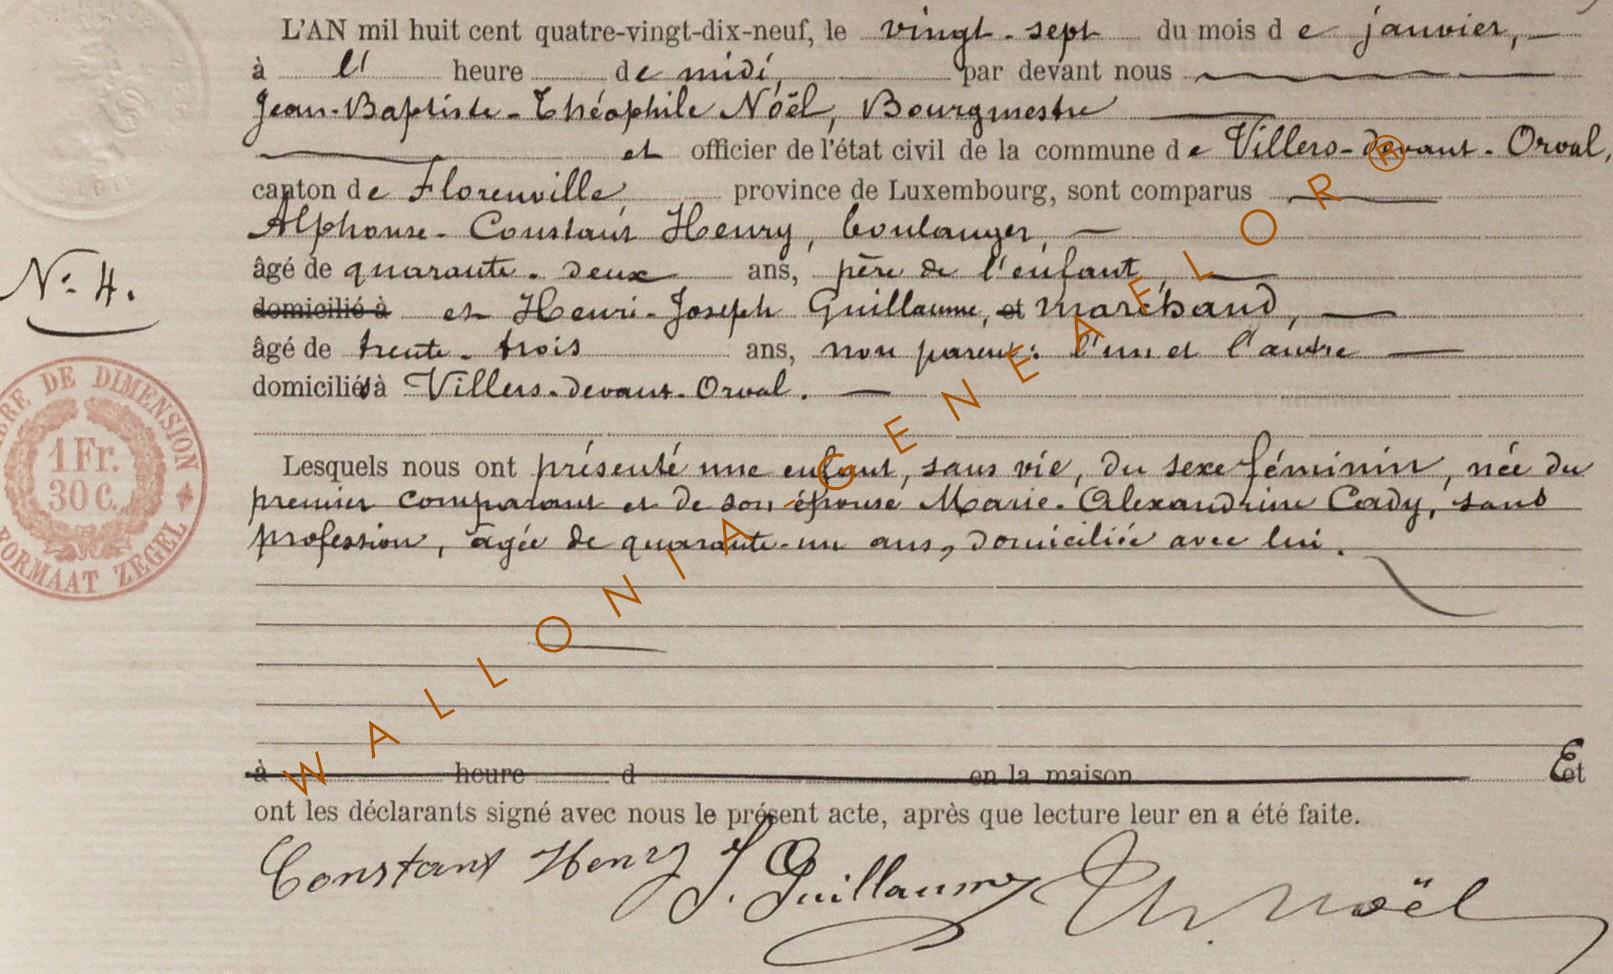 L'AN mil huit cent quatre-vingt-dix-neuf, le vingt-sept du mois de janvier,
à l' heure de midi, par devant nous
Jean-Baptiste-Théophile Noël, Bourgmestre
et officier de l'état civil de la commune de Villers-devant-Orval,
canton de Florenville, province de Luxembourg, sont comparus
Alphonse-Constant Henry, boulanger,
âgé de quarante-deux ans, père de l'enfant,
N° 4.
domicilié à et Henri-Joseph Guillaume, et marchand,
âgé de trente-trois ans, non parent: l'un et l'autre
domiciliés à Villers-devant-Orval.
TIMBRE DE DIMENSION
1 Fr.
30 C.
FORMAAT ZEGEL
Lesquels nous ont présenté une enfant, sans vie, du sexe féminin, née du
premier comparant et de son épouse Marie-Alexandrine Cady, sans
profession, âgée de quarante-un ans, domiciliée avec lui.
à heure d en la maison Et
ont les déclarants signé avec nous le présent acte, après que lecture leur en a été faite.
Constant Henry J. Guillaume Th. Noël
WALLONIA-GENEAFLOR®